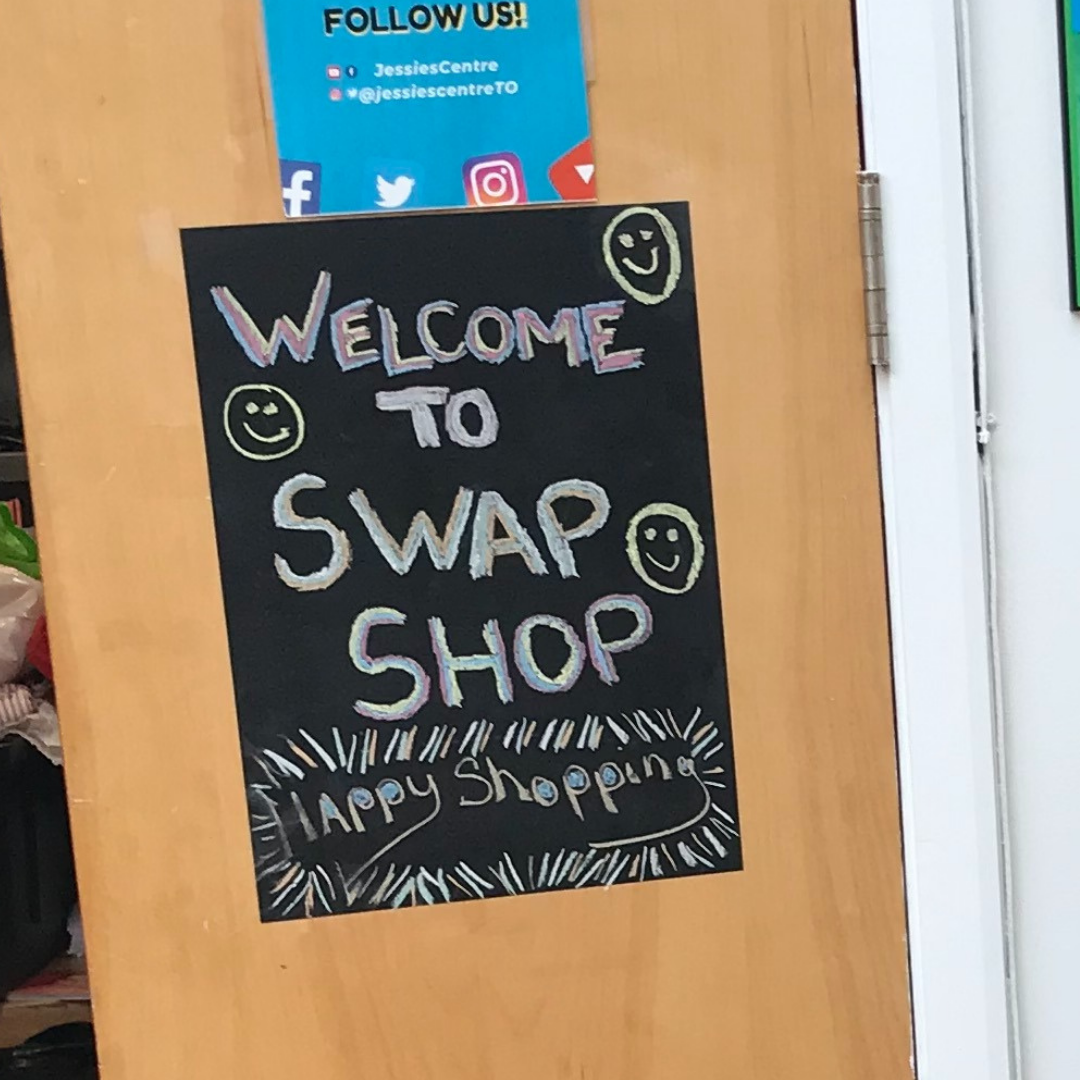 FOLLOW US!
JessiesCentre
@jessiescentreTO
WELCOME
TO
SWAP
SHOP
HAPPy Shopping